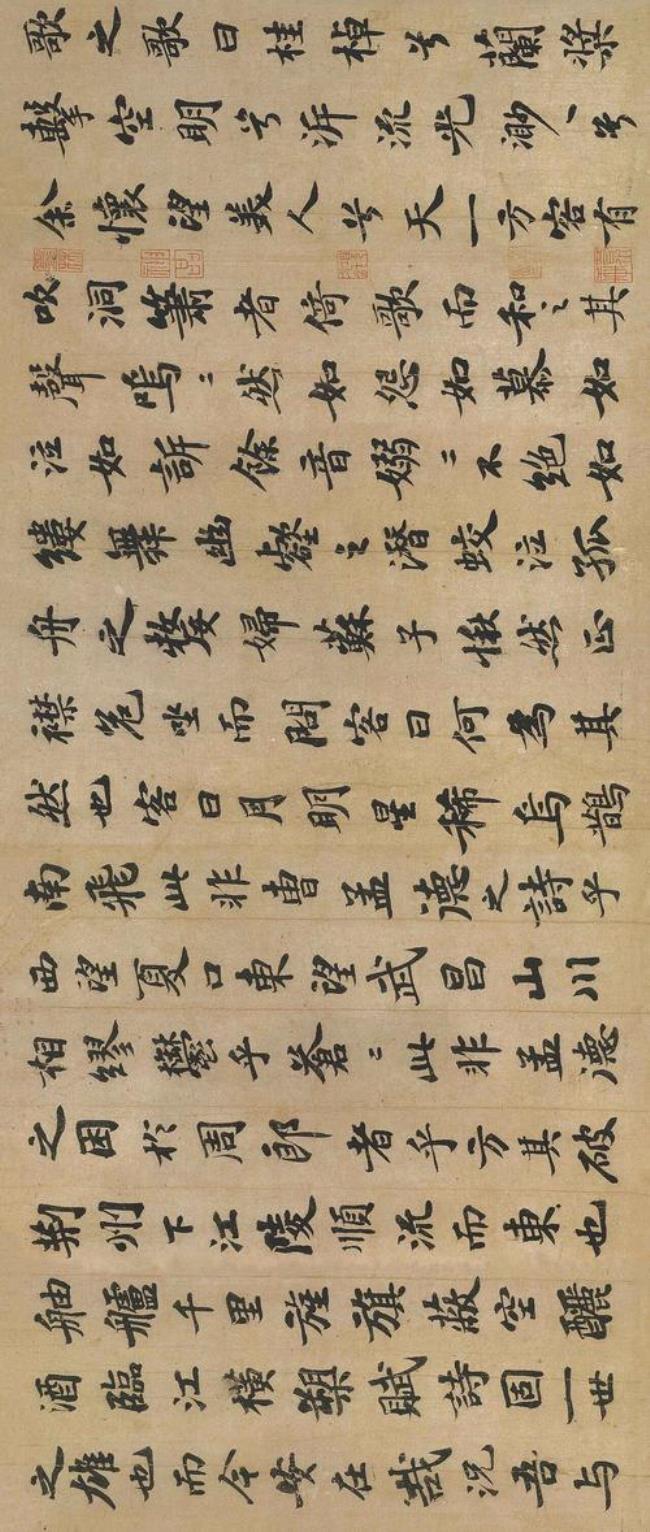 歌之歌曰桂棹兮蘭槳
擊空明兮泝流光渺〻兮
余懷望美人兮天一方客有
吹洞簫者倚歌而和〻其
聲嗚〻然如怨如慕如
泣如訴餘音嫋〻不絕如
縷舞幽壑之潛蛟泣孤
舟之嫠婦蘇子愀然正
襟危坐而問客曰何為其
然也客曰月明星稀烏鵲
南飛此非曹孟德之詩乎
西望夏口東望武昌山川
相繆鬱乎蒼〻此非孟德
之困於周郎者乎方其破
荊州下江陵順流而東也
舳艫千里旌旗蔽空釃
酒臨江橫槊賦詩固一世
之雄也而今安在哉況吾与